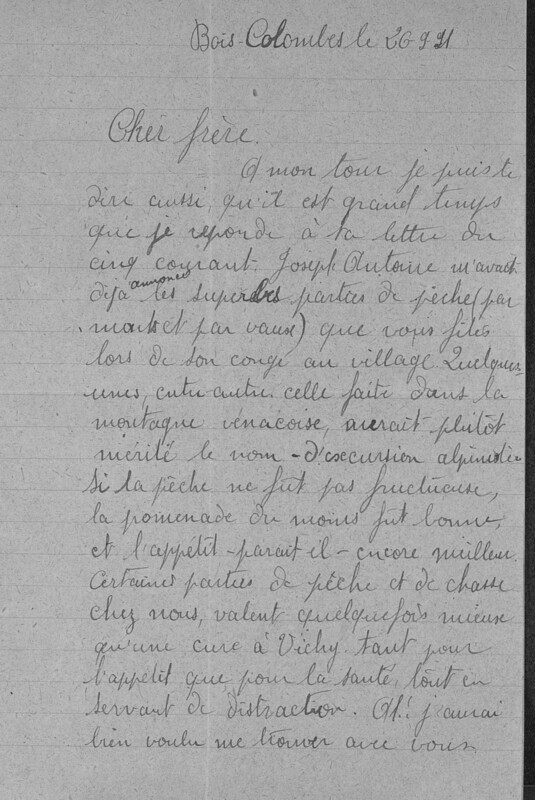 Bois-Colombes le 26 9 21
Cher frère.
A mon tour je puis te
dire aussi, qu'il est grand temps
que je reponde à ta lettre du
cinq courant. Joseph Antoine m'avait
déja annoncé les superbes parties de pêche (par
monts et par vaux) que vous fites
lors de son congé au village Quelques
unes, entre autre. celle faite dans la
montagne vénacoise, aurait plutôt
mérité le nom - d'excursion alpiniste
Si la pêche ne fut pas fructueuse,
la promenade du moins fut bonne,
et l'appétit - parait il - encore meilleur.
Certaines parties de pêche et de chasse
chez nous, valent quelquefois mieux
qu'une cure à Vichy. tant pour
l'appétit que pour la santé, tout en
servant de distraction. Ah! j'aurai
bien voulu me trouver avec vous